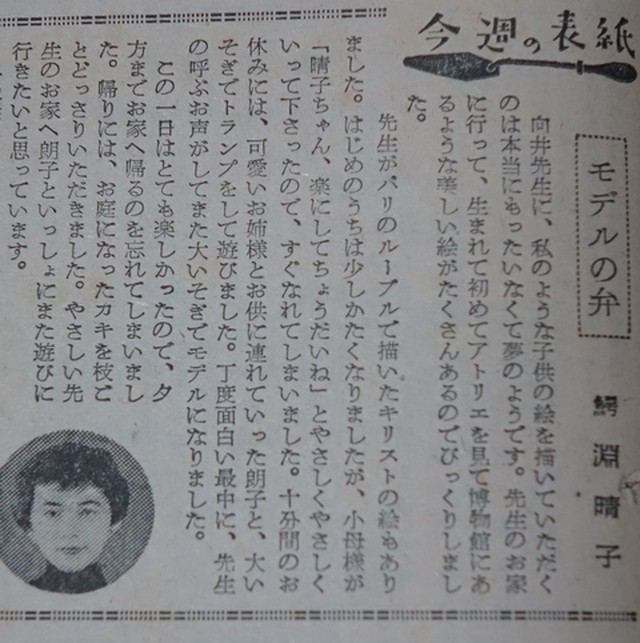 今週の表紙
モデルの弁
鰐淵晴子
向井先生に、私のような子供の絵を描いていただく
のは本当にもったいなくて夢のようです。先生のお家
に行って、生まれて初めてアトリエを見て博物館にあ
るような美しい絵がたくさんあるのでびっくりしまし
た。
先生がパリのルーブルで描いたキリストの絵もあり
ました。はじめのうちは少しかたくなりましたが、小母様が
「晴子ちゃん、楽にしてちょうだいね」とやさしくやさしく
いって下さったので、すぐなれてしまいました。十分間のお
休みには、可愛いお姉様とお供に連れていった朗子と、大い
そぎでトランプをして遊びました。丁度面白い最中に、先生
の呼ぶお声がしてまた大いそぎでモデルになりました。
この一日はとても楽しかったので、夕
方までお家へ帰るのを忘れてしまいまし
た。帰りには、お庭になったカキを枝ご
とどっさりいただきました。やさしい先
生のお家へ朗子といっしょにまた遊びに
行きたいと思っています。